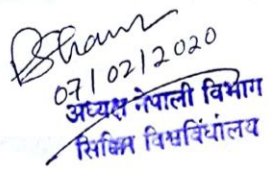 07/02/2020
अध्यक्ष नेपाली विभाग
सिक्किम विश्वविद्यालय